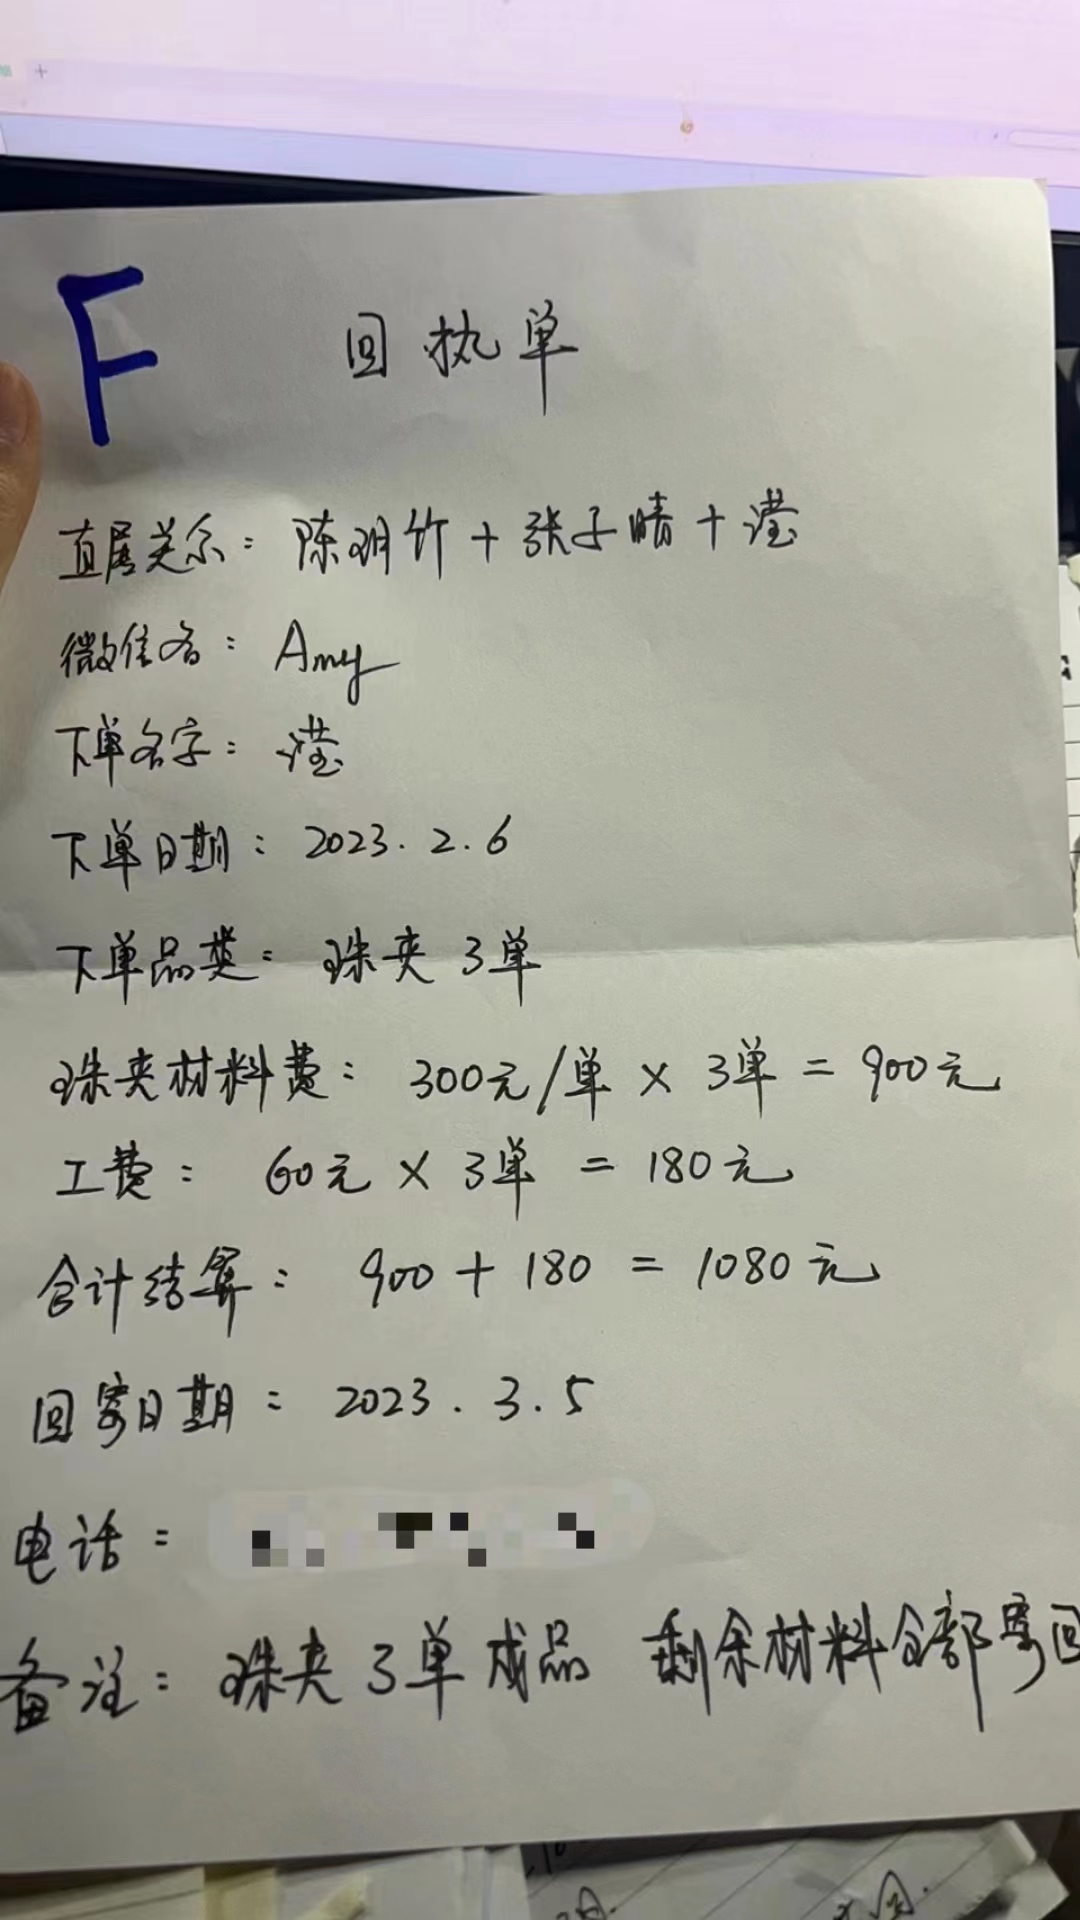 F
回执单
直属关系：陈玥竹+张子晴+滢
微信名：Amy
下单名字：滢
下单日期：2023.2.6
下单品类：珠夹3单
珠夹材料费：300元/单×3单=900元
工费：60元×3单=180元
合计结算：900+180=1080元
回寄日期：2023.3.5
电话：
备注：珠夹3单成品 剩余材料全部寄回